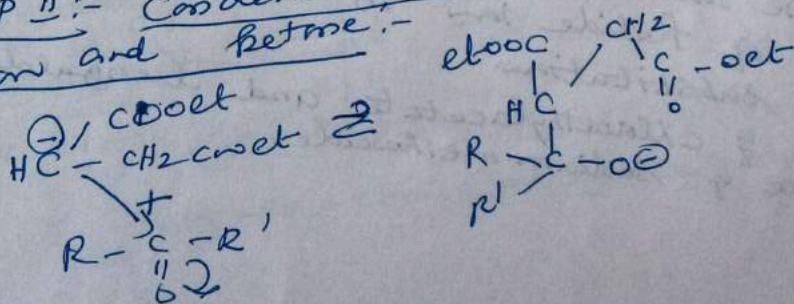 P II :- Conden
and ketone :-
⊖ COOet
HC - CH2COOet
+
R - C - R'
O
etooC CH2
C - oet
O
HC
R - C - O⊖
R'